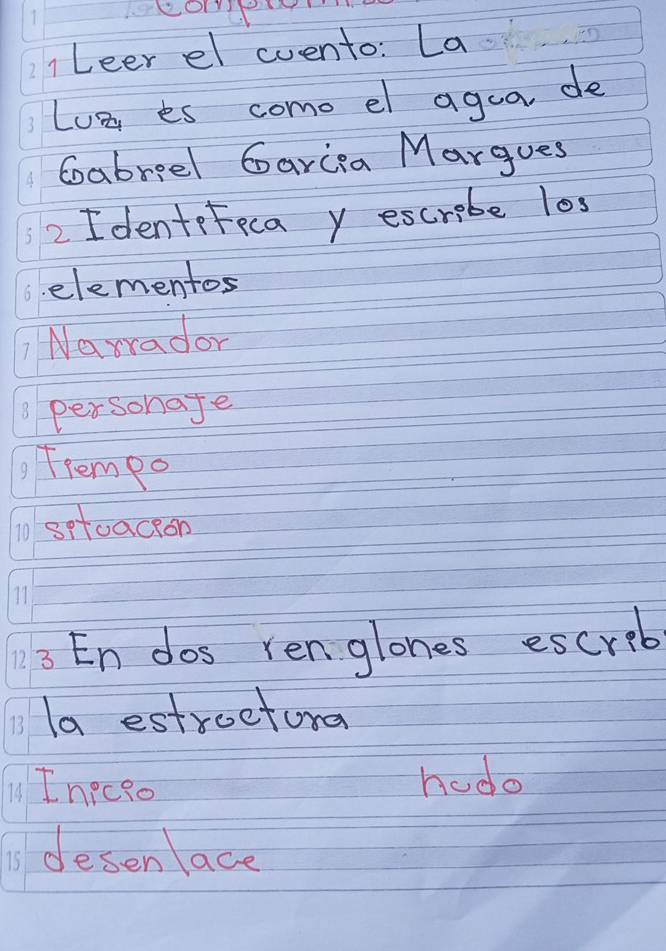 1
2 1 Leer el cuento: La
3 Luz, es como el agua, de
4 Gabriel Garcia Margues
5 2 Identifica y escribe los
6 elementos
7 Narrador
8 personaje
9 Tiempo
10 situacion
11
12 3 En dos renglones escrib
13 la estructura
14 Inicio nudo
15 desenlace